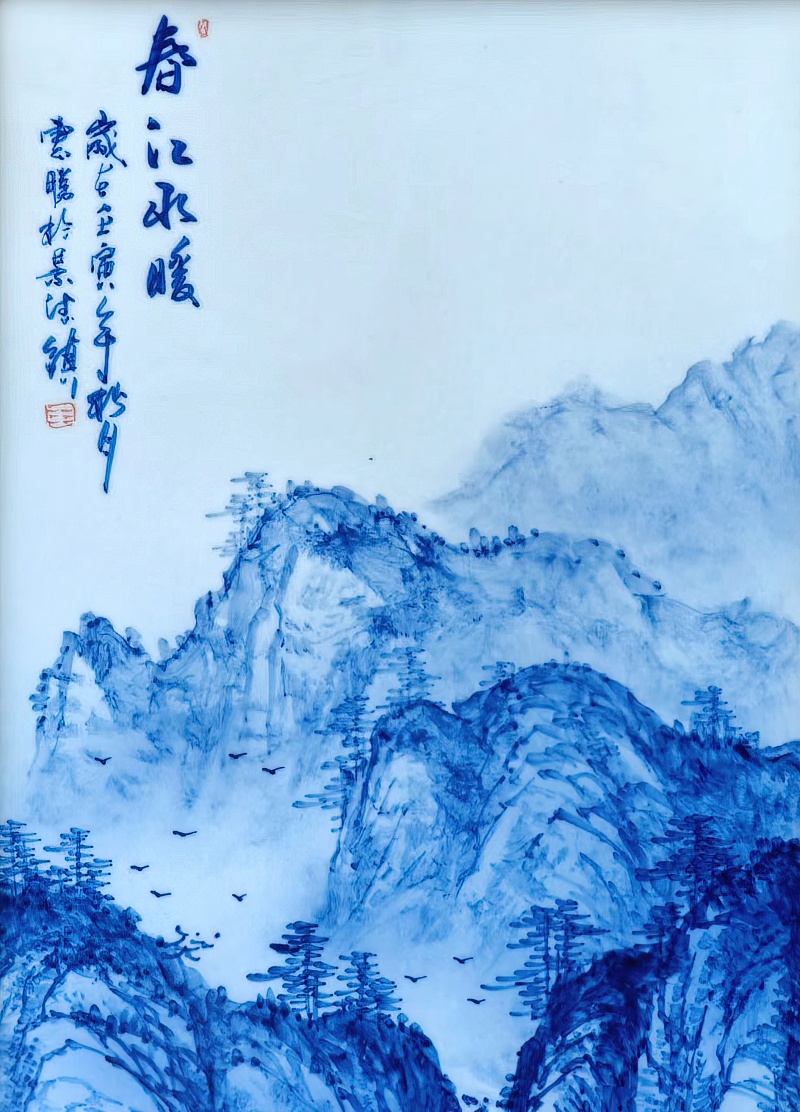 春江水暖
歲在壬寅年秋月
雲騰於景德鎮